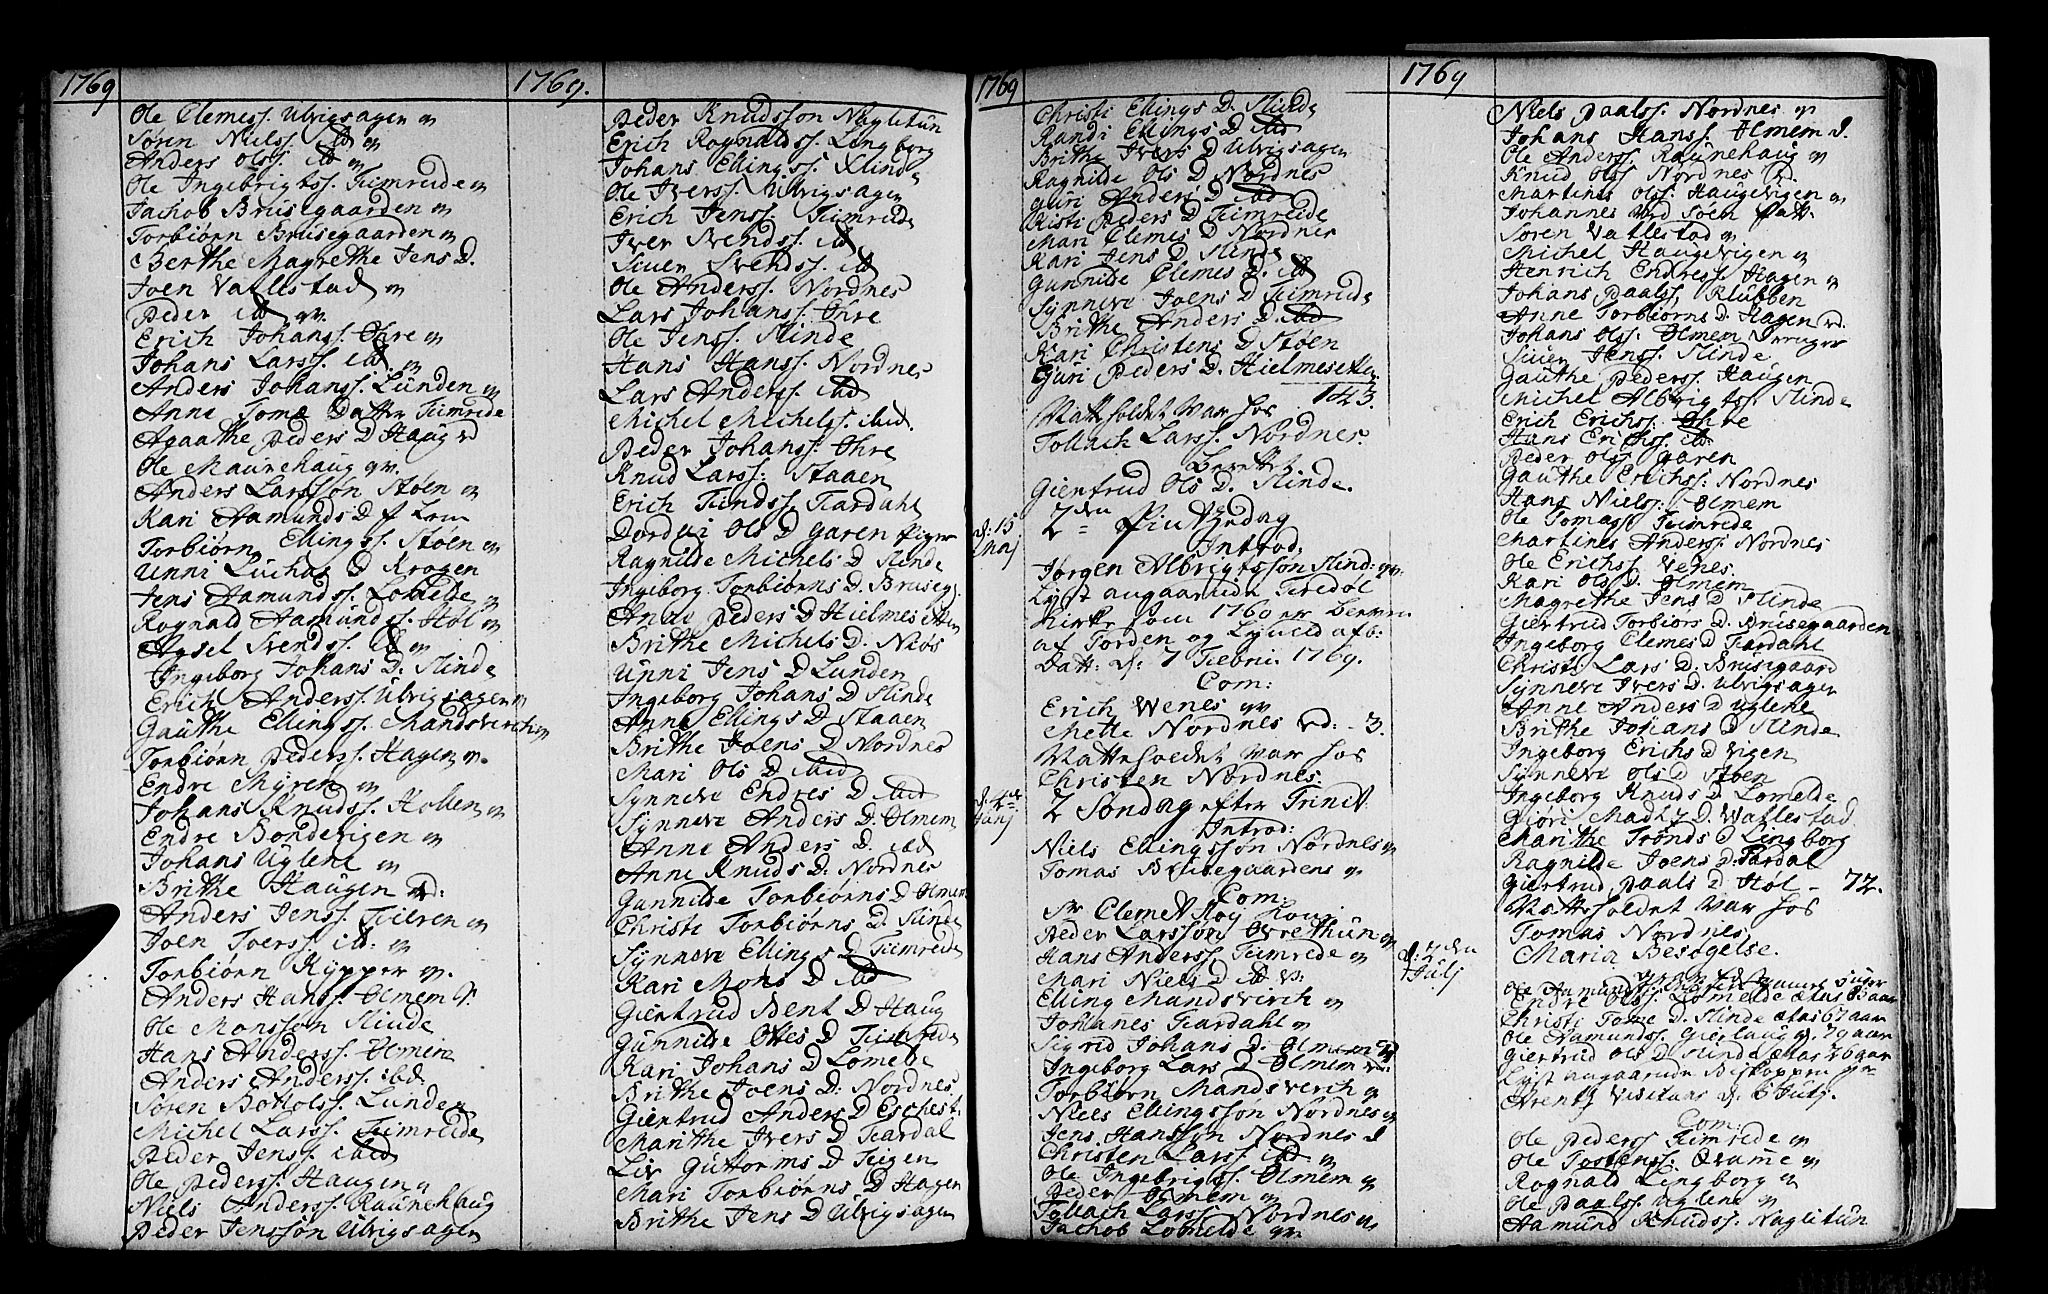 1769
Ole Clemess. Ulvigsagen
Søren Nielss. ibd
Anders Olss. ibd
Ole Ingebrigtss. Fimreide
Jachob Brusegaarden
Torbiørn Brusegaarden
Berthe Magrethe Jens D.
Joen Vallestad
Peder ibd qv.
Erich Johanss. Øhre
Johans Larss. ibd.
Anders Johanss. Lunden
Anne Tomæ Datter Fimreide
Agaathe Peders D Haug
Ole Raunehaug qv.
Anders Larssøn Stoen
Kari Aamunds D
Torbiørn Ellingss. Stoen
Unni Luchas D Krogen
Jens Aamundss. Lomelde
Rognald Aamundss. Høl
Axsel Svendss. ibd
Ingeborg Johans D. Slinde
Erich Anderss. Ulvigsagen
Gauthe Ellingss. Mandsverch
Torbiørn Pederss. Hagen qv.
Endre Myren
Johans Knudss. Holten
Endre Bondevigen
Johans Uglene
Brithe Haugen
Anders Jenss. Feieren
Joen Joerss. ibd:
Torbiørn Rypper
Anders Hanss. Olmem
Ole Monssøn Slinde
Hans Anderss. Olmem
Anders Anderss. ibd
Søren Botholss. Lunden
Michel Larss. Fimreide
Peder Jenss. ibid
Ole Pederss Haugen
Niels Anderss. Raunehaug
Peder Jenssøn Ulvigsagen
1769.
Peder Knudssøn Naglitun
Erich Rognaldss. Lingborg
Johans Ellingss. Slinde
Ole Iverss. Ulvigsagen
Erich Jenss. Fimreide
Iver Svendss. ibd
Siuer Svendss. ibd
Ole Anderss. Nordnes
Lars Johanss. Øhre
Ole Jenss. Slinde
Hans Hanss. Nordnes
Lars Anderss. ibd
Michel Michelss. ibid.
Peder Johanss. Øhre
Knud Larss: Staaen
Erich Findss. Fardahl
Dordei Ols D garen Piger
Ragnilde Michels D. Slinde
Ingeborg Torbiørns D. Bruseg:
Anne Peders D Hielmesetter
Brithe Michels D. Niøs
Unni Jens D Lunden
Ingeborg Johans D Slinde
Anne Ellings D Staaen
Brithe Joens D Nordnes
Mari Ols D ibid
Synneve Endres D ibid
Synneve Anders D. Olmem
Anne Anders D. ibd
Anne Knuds D. Nordnes
Gunnilde Torbiørns D Olmem
Christi Torbiørns D. Slinde
Synneve Ellings D Fimreide
Kari Mons D ibd
Giertrud Bent D Haug
Gunnilde Ottes D Fimreide
Kari Johans D Lomelde
Brithe Joens D: Nordnes
Giertrud Anders D Eschest.
Marithe Ivers D Fardal
Liv Guttorms D Feigen
Mari Torbiørns D Hagen
Brithe Jens D Ulvigsagen
1769
Christi Ellings D. Slinde
Randi Ellings D ibd
Brithe Ivers D Ulvigsagen
Ragnilde Ols D Nordnes
Guri Anders D ibd
Kisti Peders D Fimreide
Mari Clemes D Nordnes
Kari Jens D Slinde
Gunnilde Clemes D. ibd
Synneve Joens D Fimreide
Brithe Anders D. ibd
Kari Christens D Støen
Guri Peders D. Hielmeseter
143.
Natt holdet var hos
Tollach Larss. Nordnes.
Berettet
Giertrud Ols D. Slinde.
d: 15 Maj
2den Pintzedag
Introd:
Jørgen Albrigtssøn Slind: qv.
Lyst angaaende Feredøl
Kirke som 1769 er
af Torden og Lyneid afb:
Datt: d: 7 Febri. 1769.
Com:
Erich Wenes qv
Mette Nordnes vd: - 3.
Natteholdet var hos
Christen Nordnes.
d: 4de Junj
2 Søndag efter Trinit.
Introd:
Niels Ellingssøn Nordnes
Tomas Brusegaardens
Com:
Sr Clemet Roy
Peder Larssøn Øvrethun
Hans Anderss. Fimreide
Mari Niels D ibd
Elling Mandsverch
Johannes Fardahl
Sigrid Johans D. Olmem
Ingeborg Lars D Olmem
Torbiørn Mandsverch
Niels Ellingssøn Nordnes
Jens Hanssøn Nordnes
Christen Larss. ibd
Ole Ingebrigtss. Olmem
Peder Olmem
Tollach Larss. Nordnes
Jachob Lomelde qv.
1769
Niels Paalss. Nordnes
Johans Hanss. Olmem
Ole Anderss. Raunehaug
Knud Olss Nordnes
Martines Olss. Haugevigen
Johannes
Søren Vallestad
Michel Haugevigen
Henrich Endress Hagen
Johans Paalss. Klubben
Anne Torbiørns D. Hagen
Johans Olss. Olmem Drenger
Siuer Jenss. Slinde
Gauthe Pederss. Haugen
Michel Albrigtss. Slinde
Erich Erichss: Øhre
Hans Erichss ibd:
Peder Olss garen
Gauthe Erichss: Nordnes
Hans Nielss: Olmem
Ole Tomass Fimreide
Martines Anderss: Nordnes
Ole Erichss. Venes.
Kari Ols D. Olmem
Magrethe Jens D Slinde
Giertrud Torbiørs D. Brusegaarden
Ingeborg Clemes D Fardahl
Christi Lars D. Brusegaard
Synneve Ivers D. Ulvigsagen
Anne Anders D Uglene
Brithe Johans D Slinde
Ingeborg Erichs D Vigen
Synneve Ols D Støen
Ingeborg Knuds D Lomelde
Giøri Mads D Vallestad
Marithe Tronds D Lingborg
Ragnilde Joens D. Fardal
Giertrud Paals D Høl - 72.
Natteholdet var hos
Tomas Nordnes.
d: 2den Julj
Maria Besøgelse.
Endre Olss. Lomelde ætas
Christi Tome D. Slinde ætas 67 aar
Ole Aamundss. Gierlaug 79 aar
Giertrud Ols D Slinde ætas 76 aar
Lyst angaaende Biskoppen
Arentz Visitaas d. 6 Julj.
Com:
Ole Pederss Fimreide
Ole Tostenss. Qvamme
Rognald Lingborg
Ole Paalss Uglene
Aamund Knudss. Naglitun